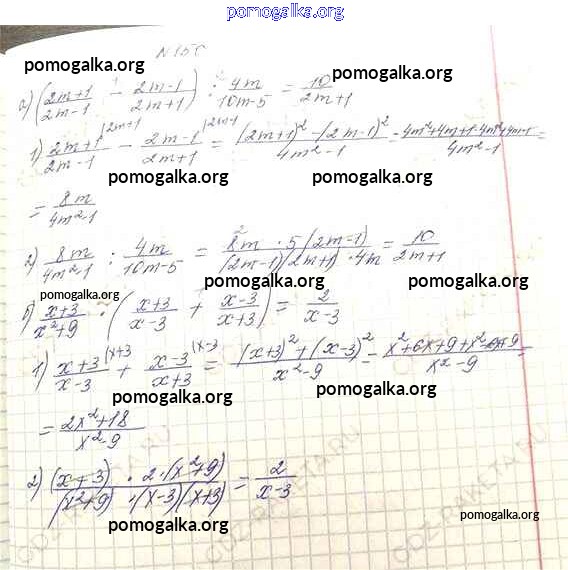 pomogalka.org
N 150
pomogalka.org
pomogalka.org
а) ((2m+1)/(2m-1) - (2m-1)/(2m+1)) : 4m/(10m-5) = 10/(2m+1)
pomogalka.org
pomogalka.org
1) (2m+1)/(2m-1) |2m+1 - (2m-1)/(2m+1) |2m-1 = ((2m+1)²-(2m-1)²)/(4m²-1) = (4m²+4m+1-4m²+4m-1)/(4m²-1) =
pomogalka.org
pomogalka.org
= 8m/(4m²-1)
2) 8m/(4m²-1) : 4m/(10m-5) = (8m · 5(2m-1))/((2m-1)(2m+1) · 4m) = 10/(2m+1)
pomogalka.org
pomogalka.org
pomogalka.org
б) (x+3)/(x²+9) : ((x+3)/(x-3) + (x-3)/(x+3)) = 2/(x-3)
pomogalka.org
pomogalka.org
1) (x+3)/(x-3) |x+3 + (x-3)/(x+3) |x-3 = ((x+3)²+(x-3)²)/(x²-9) = (x²+6x+9+x²-6x+9)/(x²-9) =
pomogalka.org
pomogalka.org
= (2x²+18)/(x²-9)
pomogalka.org
2) ((x+3) · 2·(x²+9))/((x²+9) · (x-3)(x+3)) = 2/(x-3)
pomogalka.org
pomogalka.org